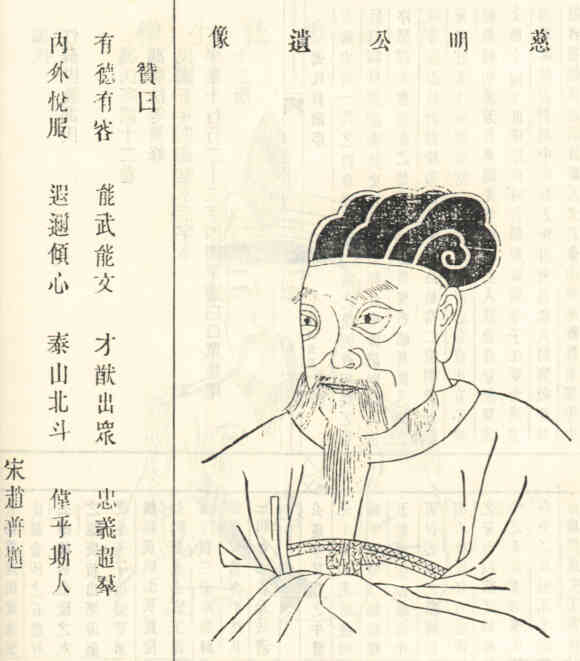 慈明公遺像
贊曰
有德有容 能武能文 才猷出眾 忠義超羣
內外悅服 遐邇傾心 泰山北斗 僅乎斯人
宋趙普題